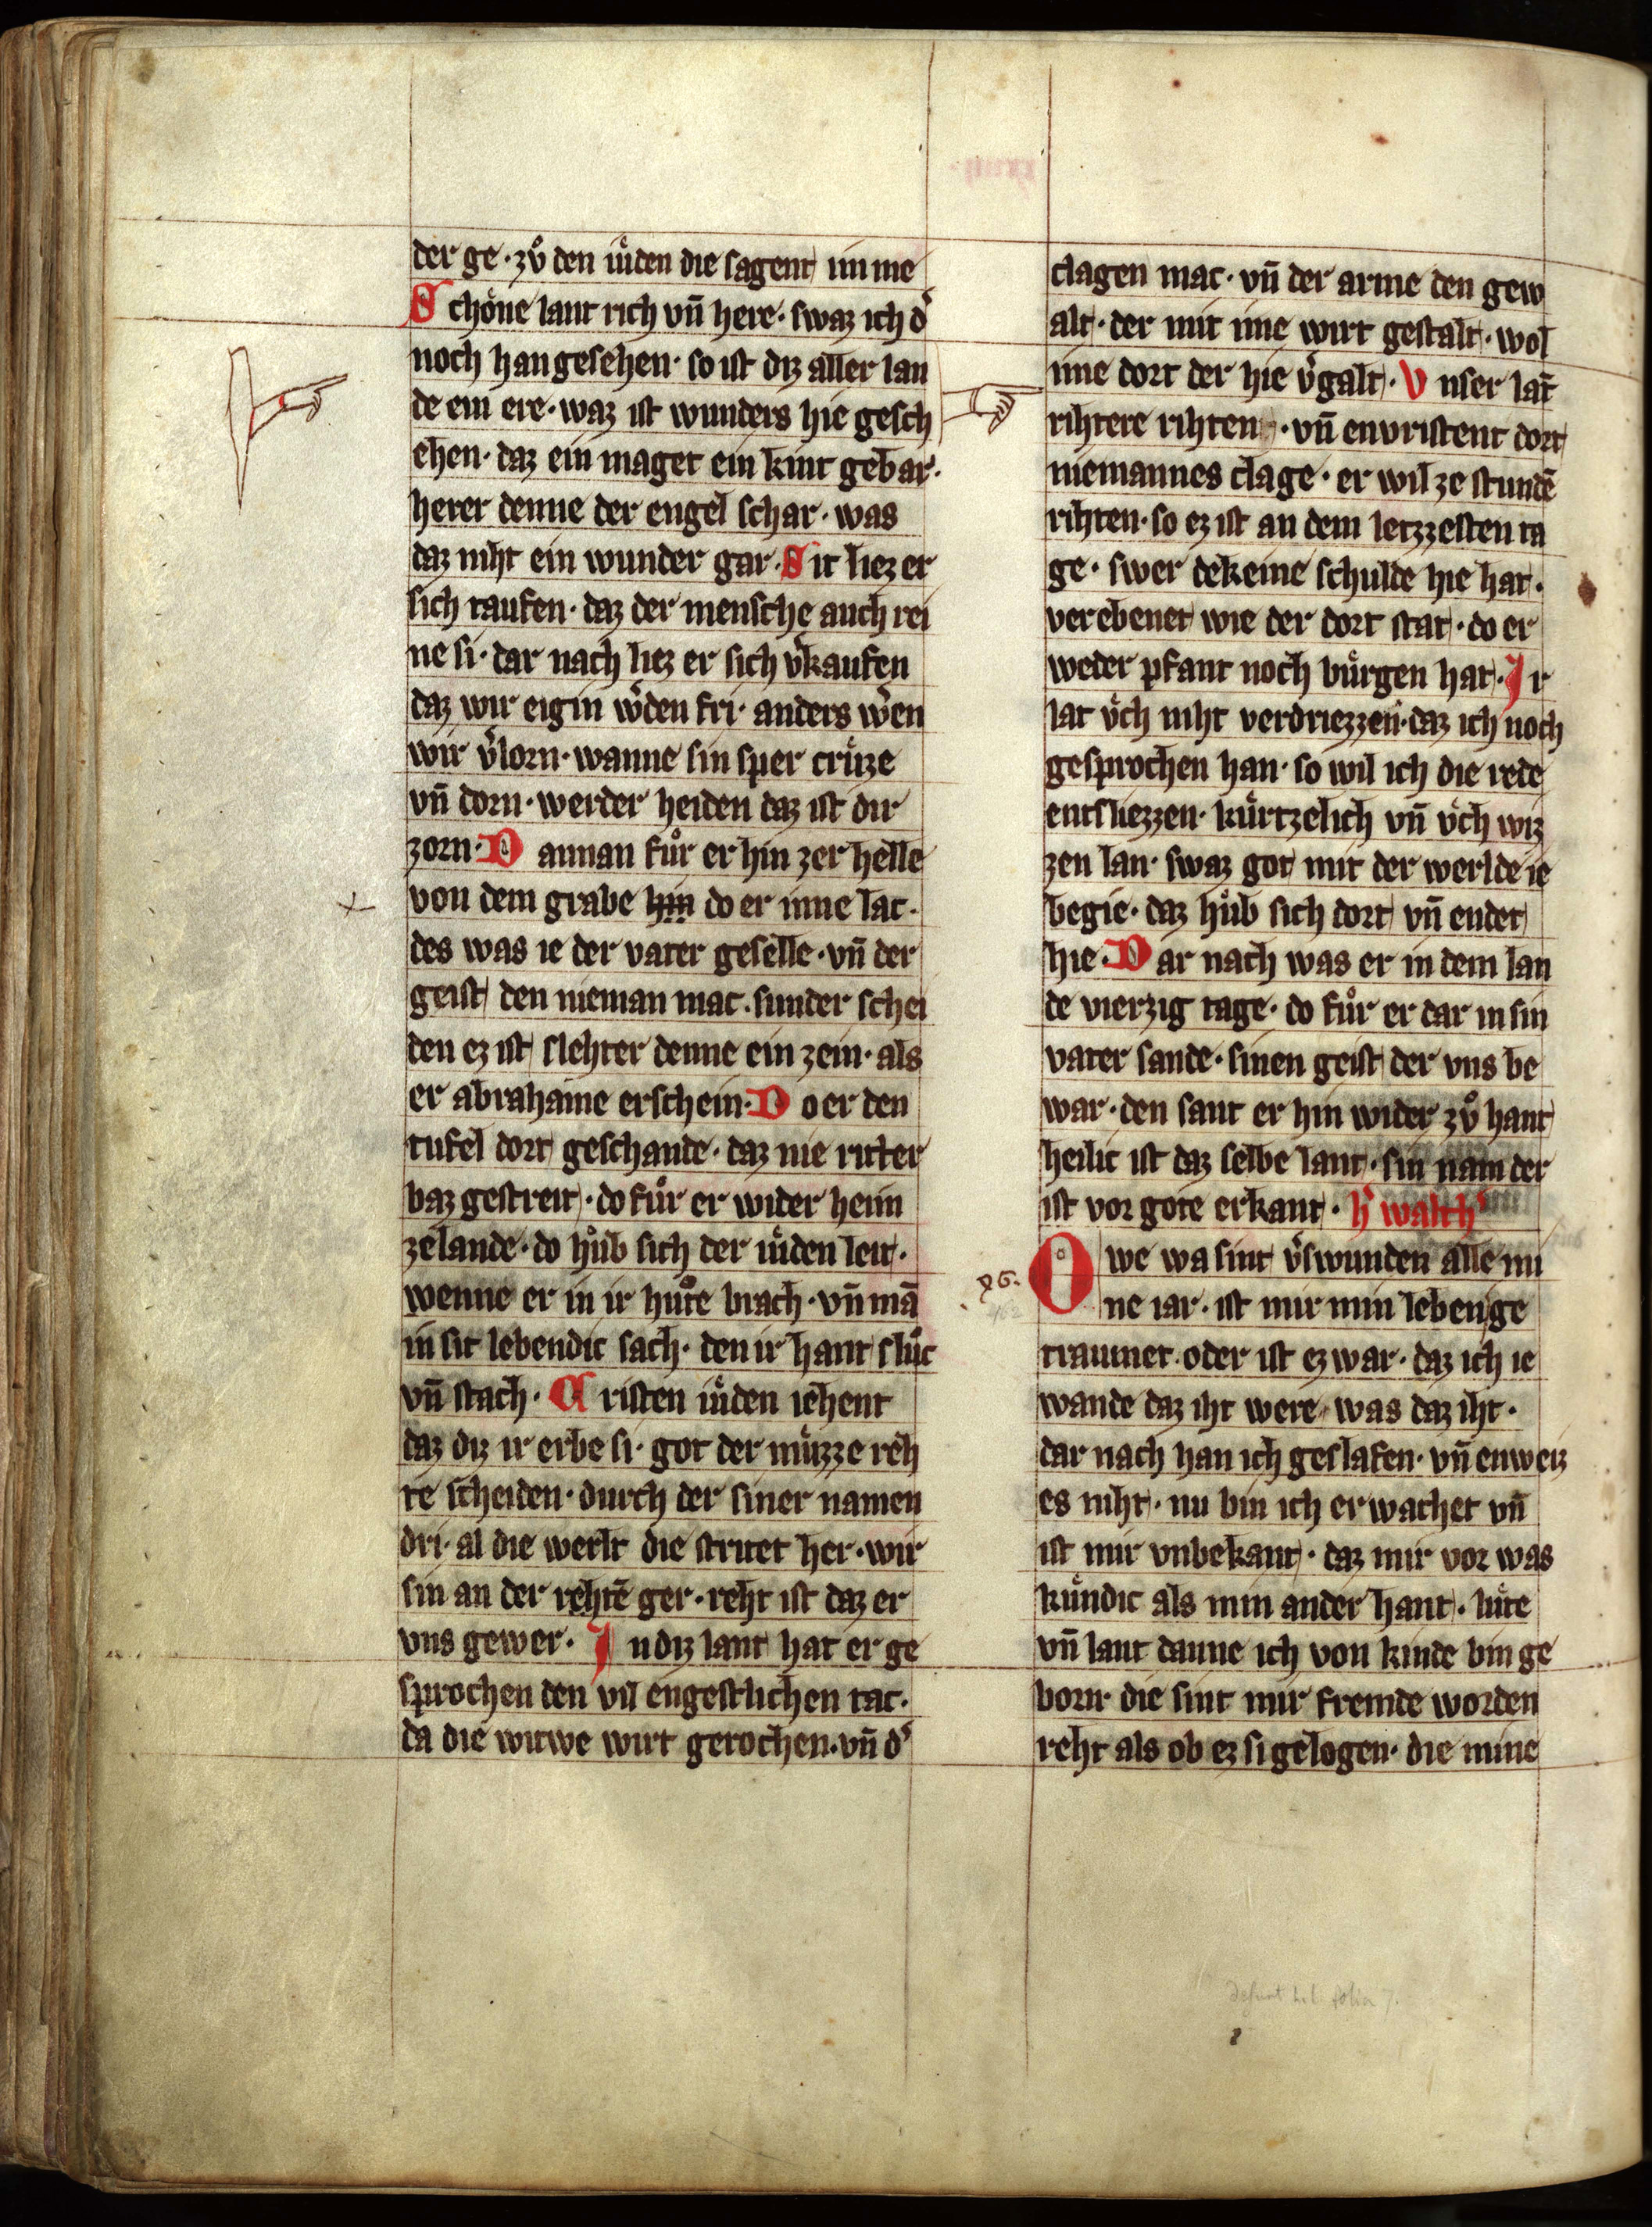 xxiiii
der ge · zů den iuͤden die sagent im me
Schoͤne lant rich vn̄ here · swaz ich dˢ
noch han gesehen · so ist diz aller lan
de ein ere · waz ist wunders hie gesch
ehen · daz ein maget ein kint gebar ·
herer denne der engel schar · was
daz niht ein wunder gar · Sit liez er
sich taufen · daz der mensche auch rei
ne si · dar nach liez er sich vˢkaufen
daz wir eigin wˢden fri · anders wˢen
wir vˢlorn · wanne sin sper cruͤze
vn̄ dorn · werder heiden daz ist dir
zorn · Dannan fuͦr er hin zer helle
von dem grabe hin do er inne lac ·
des was ie der vater geselle · vn̄ der
geist den nieman mac · sunder schei
den ez ist slehter denne ein zein · als
er abrahame erschein · Do er den
tufel dort geschande · daz nie ritter
baz gestreit · do fuͦr er wider heim
zelande · do huͦb sich der iuͤden leit ·
wenne er in ir huͦte brach · vn̄ mā
in sit lebendic sach · den ir hant sluͦc
vn̄ stach · Cristen iuͤden iehent
daz diz ir erbe si · got der muͤzze reh
te scheiden · durch der siner namen
dri · al die werlt die stritet her · wir
sin an der rehtē ger · reht ist daz er
vns gewer · In diz lant hat er ge
sprochen den vil engestlichen tac ·
da die witwe wirt gerochen · vn̄ dˢ
clagen mac · vn̄ der arme den gew
alt · der mit ime wirt gestalt · wol
ime dort der hie vˢgalt · Vnser lāt
rihtere rihten · vn̄ envristent dort
niemannes clage · er wil ze stundē
rihten · so ez ist an dem letzzesten ta
ge · swer dekeine schulde hie hat ·
verebenet wie der dort stat · do er
weder pfant noch buͤrgen hat · Ir
lat vͤch niht verdriezzen · daz ich noch
gesprochen han · so wil ich die rede
entsliezzen · kuͤrtzelich vn̄ vͤch wiz
zen lan · swaz got mit der werlde ie
begie · daz huͦb sich dort vn̄ endet
hie · Dar nach was er in dem lan
de vierzig tage · do fuͦr er dar in sin
vater sande · sinen geist der vns be
war · den sant er hin wider zů hant
heilic ist daz selbe lant · sin nam der
ist vor gote erkant · hˢ walthˢ
Owe wa sint vˢswunden alle mi
ne iar · ist mir min leben ge
traumet oder ist ez war · daz ich ie
wande daz iht were was daz iht ·
dar nach han ich geslafen · vn̄ enweiz
es niht · nu bin ich erwachet vn̄
ist mir vnbekant · daz mir vor was
kuͤndic als min ander hant · luͤte
vn̄ lant danne ich von kinde bin ge
born die sint mir fremde worden
reht als ob ez si gelogen · die mine